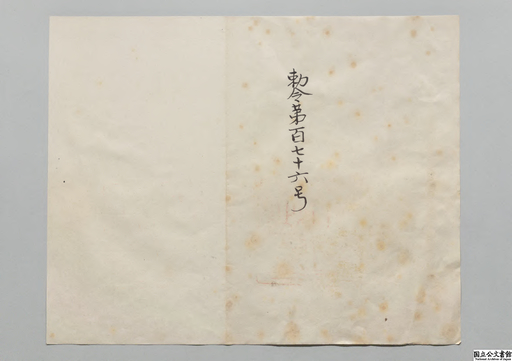 勅令第百七十六号
国立公文書館
National Archives of Japan